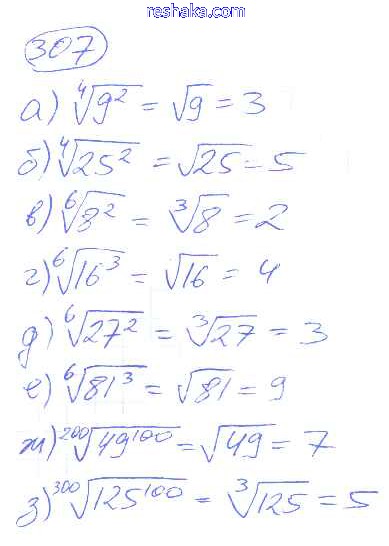 reshaka.com
307
а) ⁴√9² = √9 = 3
б) ⁴√25² = √25 = 5
в) ⁶√8² = ³√8 = 2
г) ⁶√16³ = √16 = 4
д) ⁶√27² = ³√27 = 3
е) ⁶√81³ = √81 = 9
ж) ²⁰⁰√49¹⁰⁰ = √49 = 7
з) ³⁰⁰√125¹⁰⁰ = ³√125 = 5